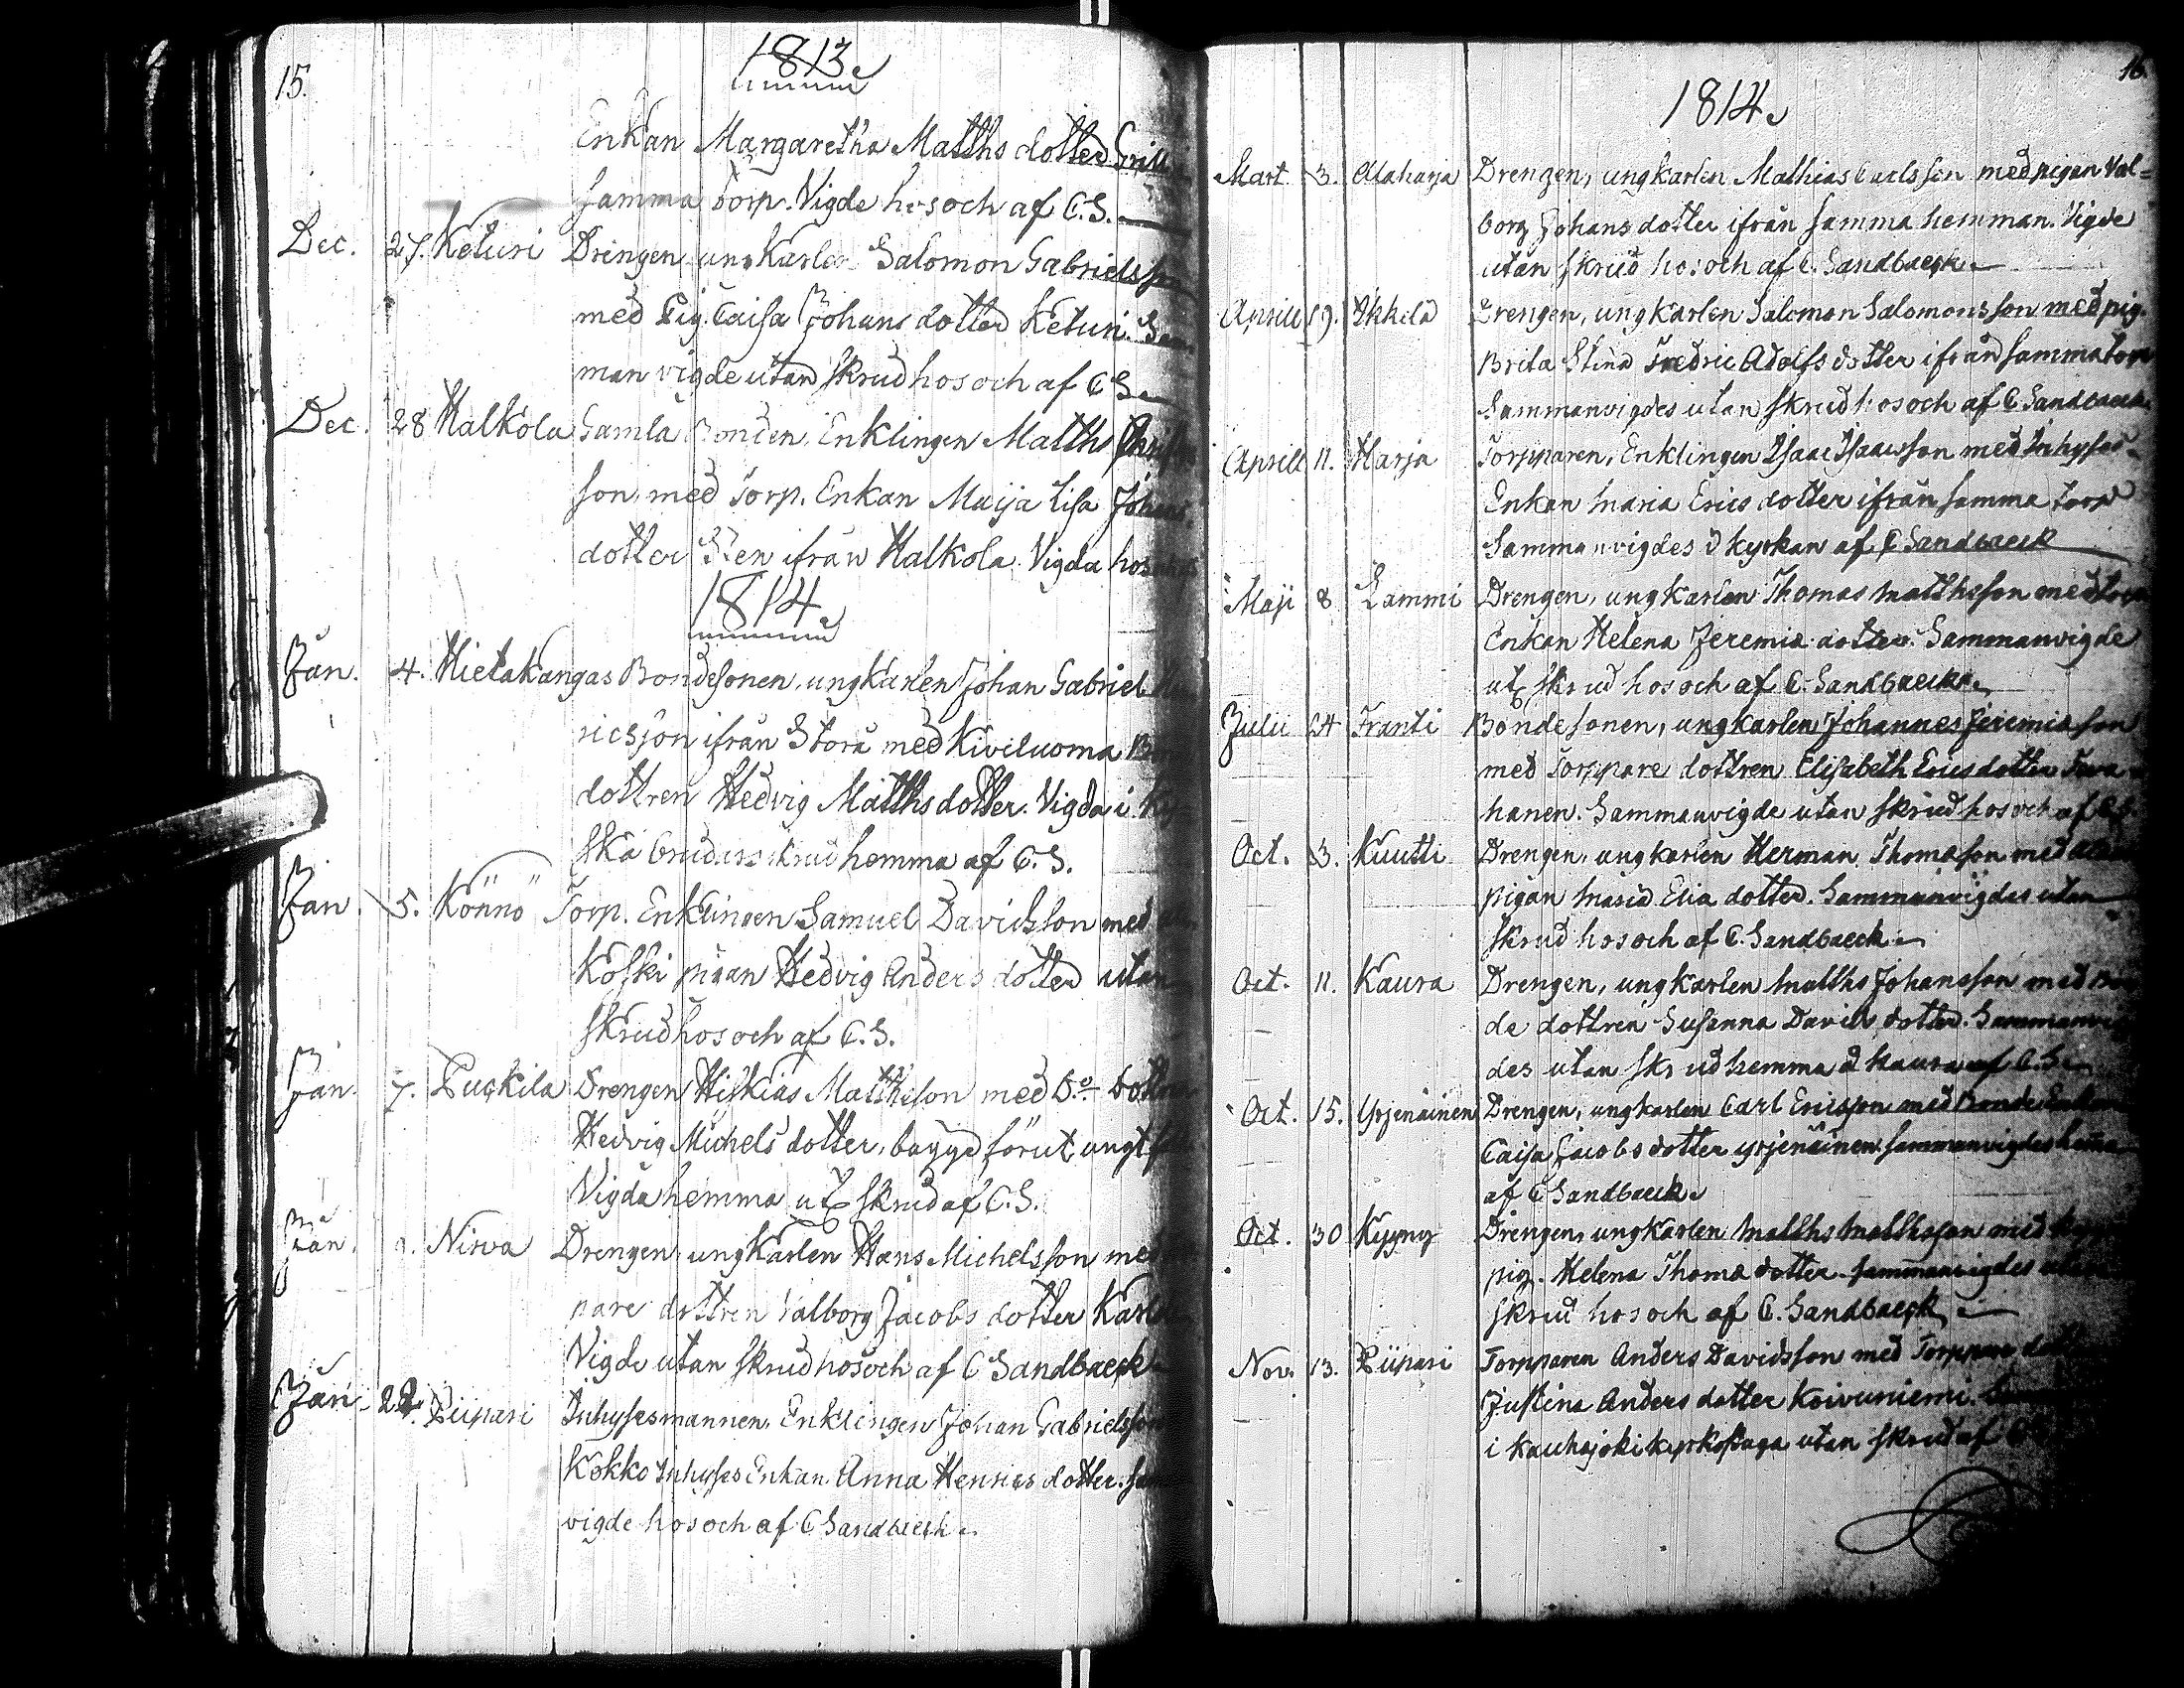 15.
1813
Enkan Margaretha Matths dotter
samma torp. Vigde hos och af C.S.
Dec. 27. Keturi Drengen ungkarlen Salomon Gabrielsson
med Pig. Caisa Johans dotter Keturi. Sam
man vigde utan skrud hos och af C S
Dec. 28 Halkola Gamla Bonden Enklingen Matths
son, med Torp. Enkan Maija Lisa Johans
dotter Sten ifrån Halkola. Vigda hos
1814
Jan. 4. Hietakangas Bondesonen, ungkarlen Johan Gabriel
ricsson ifrån Storå med Kiviluoma
dottren Hedvig Matthsdotter. Vigda i
ska brudarskrud hemma af C.S.
Jan. 5. Könnö Torp. Enklingen Samuel Davidsson med
Koski pigan Hedvig Anders dotter utan
skrud hos och af C.S.
Jan. 7. Luckila Drengen Hiskias Matthsson med Do dottren
Hedvig Michels dotter, bagge förut ungt
Vigda hemma ut skrud af C.S.
Jan. 9. Nirva Drengen ungkarlen Hans Michelsson med
pare dottren Valborg Jacobs dotter
Vigde utan skrud hos och af C Sandbaeck
Jan. 22. Piipari Inhysesmannen, Enklingen Johan Gabrielsson
Kokko Inhyses Enkan Anna Henrics dotter.
vigde hos och af C Sandbaeck
16.
1814
Mart. 3. Alaharja Drengen, ungkarlen Mathias Carlsson med pigan Val=
borg Johans dotter ifrån samma hemman. Vigde
utan skrud hos och af C. Sandbaeck
Aprill 19. Ikkela Drengen, ungkarlen Salomon Salomonsson med pig.
Brita Stina Fredric Adolfs dotter ifrån samma torp
Sammanvigdes utan skrud hos och af C Sandbaeck
Aprill 11. Harja Torpparen, Enklingen Isaac Isaacsson med Inhyses
Enkan Maria Erics dotter ifrån samma torp
Sammanvigdes i kyrkan af C Sandbaeck
Maji 8 Lammi Drengen, ungkarlen Thomas Matthsson med
Enkan Helena Jeremia dotter. Sammanvigde
ut skrud hos och af C. Sandbaeck
Julii 24 Franti Bondesonen, ungkarlen Johannes Jeremiasson
med Torppare dottren Elisabeth Ericsdotter
hanen. Sammanvigde utan skrud hos och af
Oct. 3. Kuutti Drengen, ungkarlen Herman Thomasson med
pigan Maria Elia dotter. Sammanvigdes utan
skrud hos och af C. Sandbaeck
Oct. 11. Kaura Drengen, ungkarlen Matths Johansson med Bon
de dottren Susanna Davids dotter.
des utan skrud hemma å Kaura af C.S
Oct. 15. Yrjenäinen Drengen, ungkarlen Carl Ericsson med Bonde Enkan
Caisa Jacobs dotter Yrjenäinen. sammanvigdes hemma
af C Sandbaeck
Oct. 30 Kyyny Drengen, ungkarlen Matths Matthsson med
pig. Helena Thoma dotter. sammanvigdes utan
skrud hos och af C. Sandbaeck
Nov. 13. Piipari Torpparen Anders Davidsson med Torppare
Justina Anders dotter Koivuniemi.
i Kauhajoki kyrkostuga utan skrud af